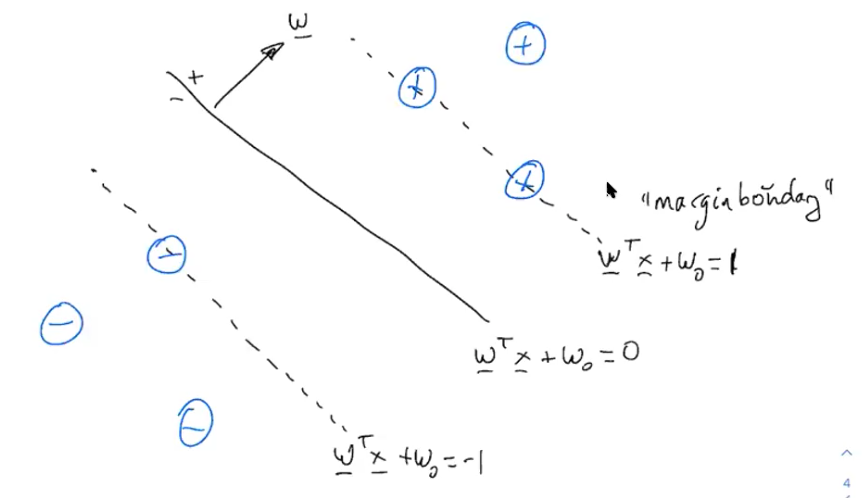 w
+
+
-
+
+
"margin boundary"
w^T x + w_0 = 1
-
-
w^T x + w_0 = 0
-
w^T x + w_0 = -1
4